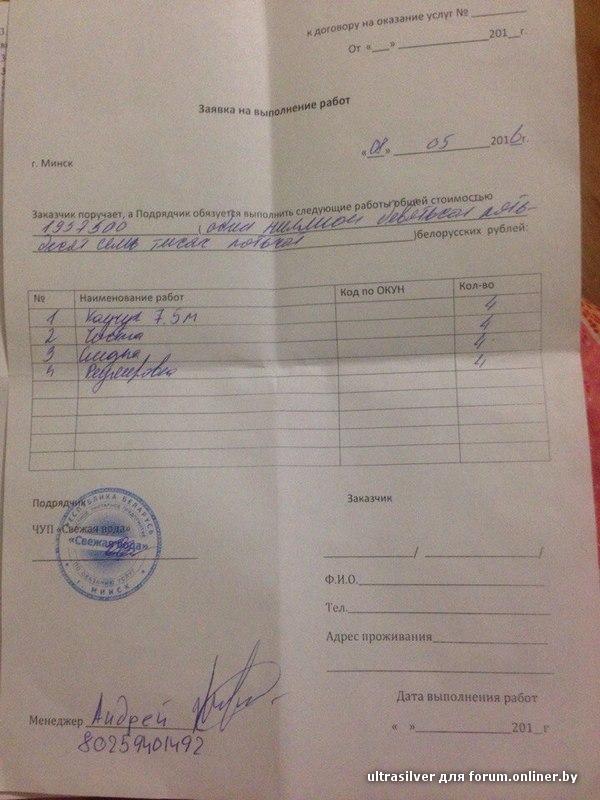 к договору на оказание услуг № ________
От «___» ______________201__г.
Заявка на выполнение работ
«08» 05 2016г.
г. Минск
Заказчик поручает, а Подрядчик обязуется выполнить следующие работы общей стоимостью
1957500 (один миллион девятьсот пять-
десят семь тысяч пятьсот )белорусских рублей:
№ Наименование работ Код по ОКУН Кол-во
1 Каучук 7.5м 4
2 4
3 4
4 Регулировка 4
Подрядчик Заказчик
ЧУП «Свежая вода»
РЕСПУБЛИКА БЕЛАРУСЬ
«Свежая вода»
по оказанию услуг
г. МИНСК
____________/ ________________/
Ф.И.О.
Тел.
Адрес проживания
Дата выполнения работ
« » ______________201__г
Менеджер Андрей
80259401492
ultrasilver для forum.onliner.by